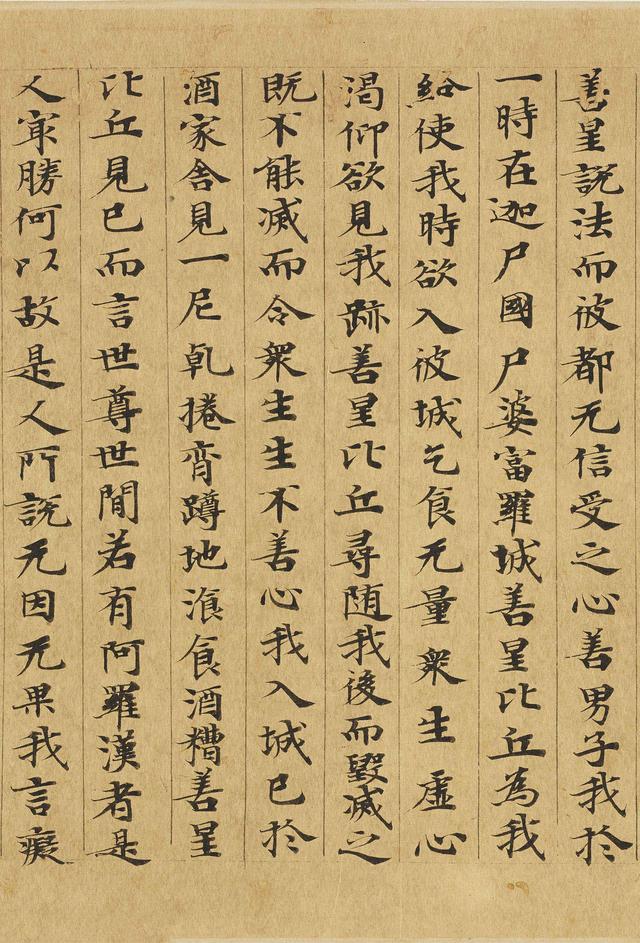 善星說法而彼都无信受之心善男子我於
一時在迦尸國尸婆富羅城善星比丘為我
給使我時欲入彼城乞食无量眾生虛心
渴仰欲見我跡善星比丘尋隨我後而毀滅之
既不能滅而令眾生生不善心我入城已於
酒家舍見一尼乹捲脊蹲地飡食酒糟善星
比丘見已而言世尊世間若有阿羅漢者是
人冣勝何以故是人所說无因无果我言癡